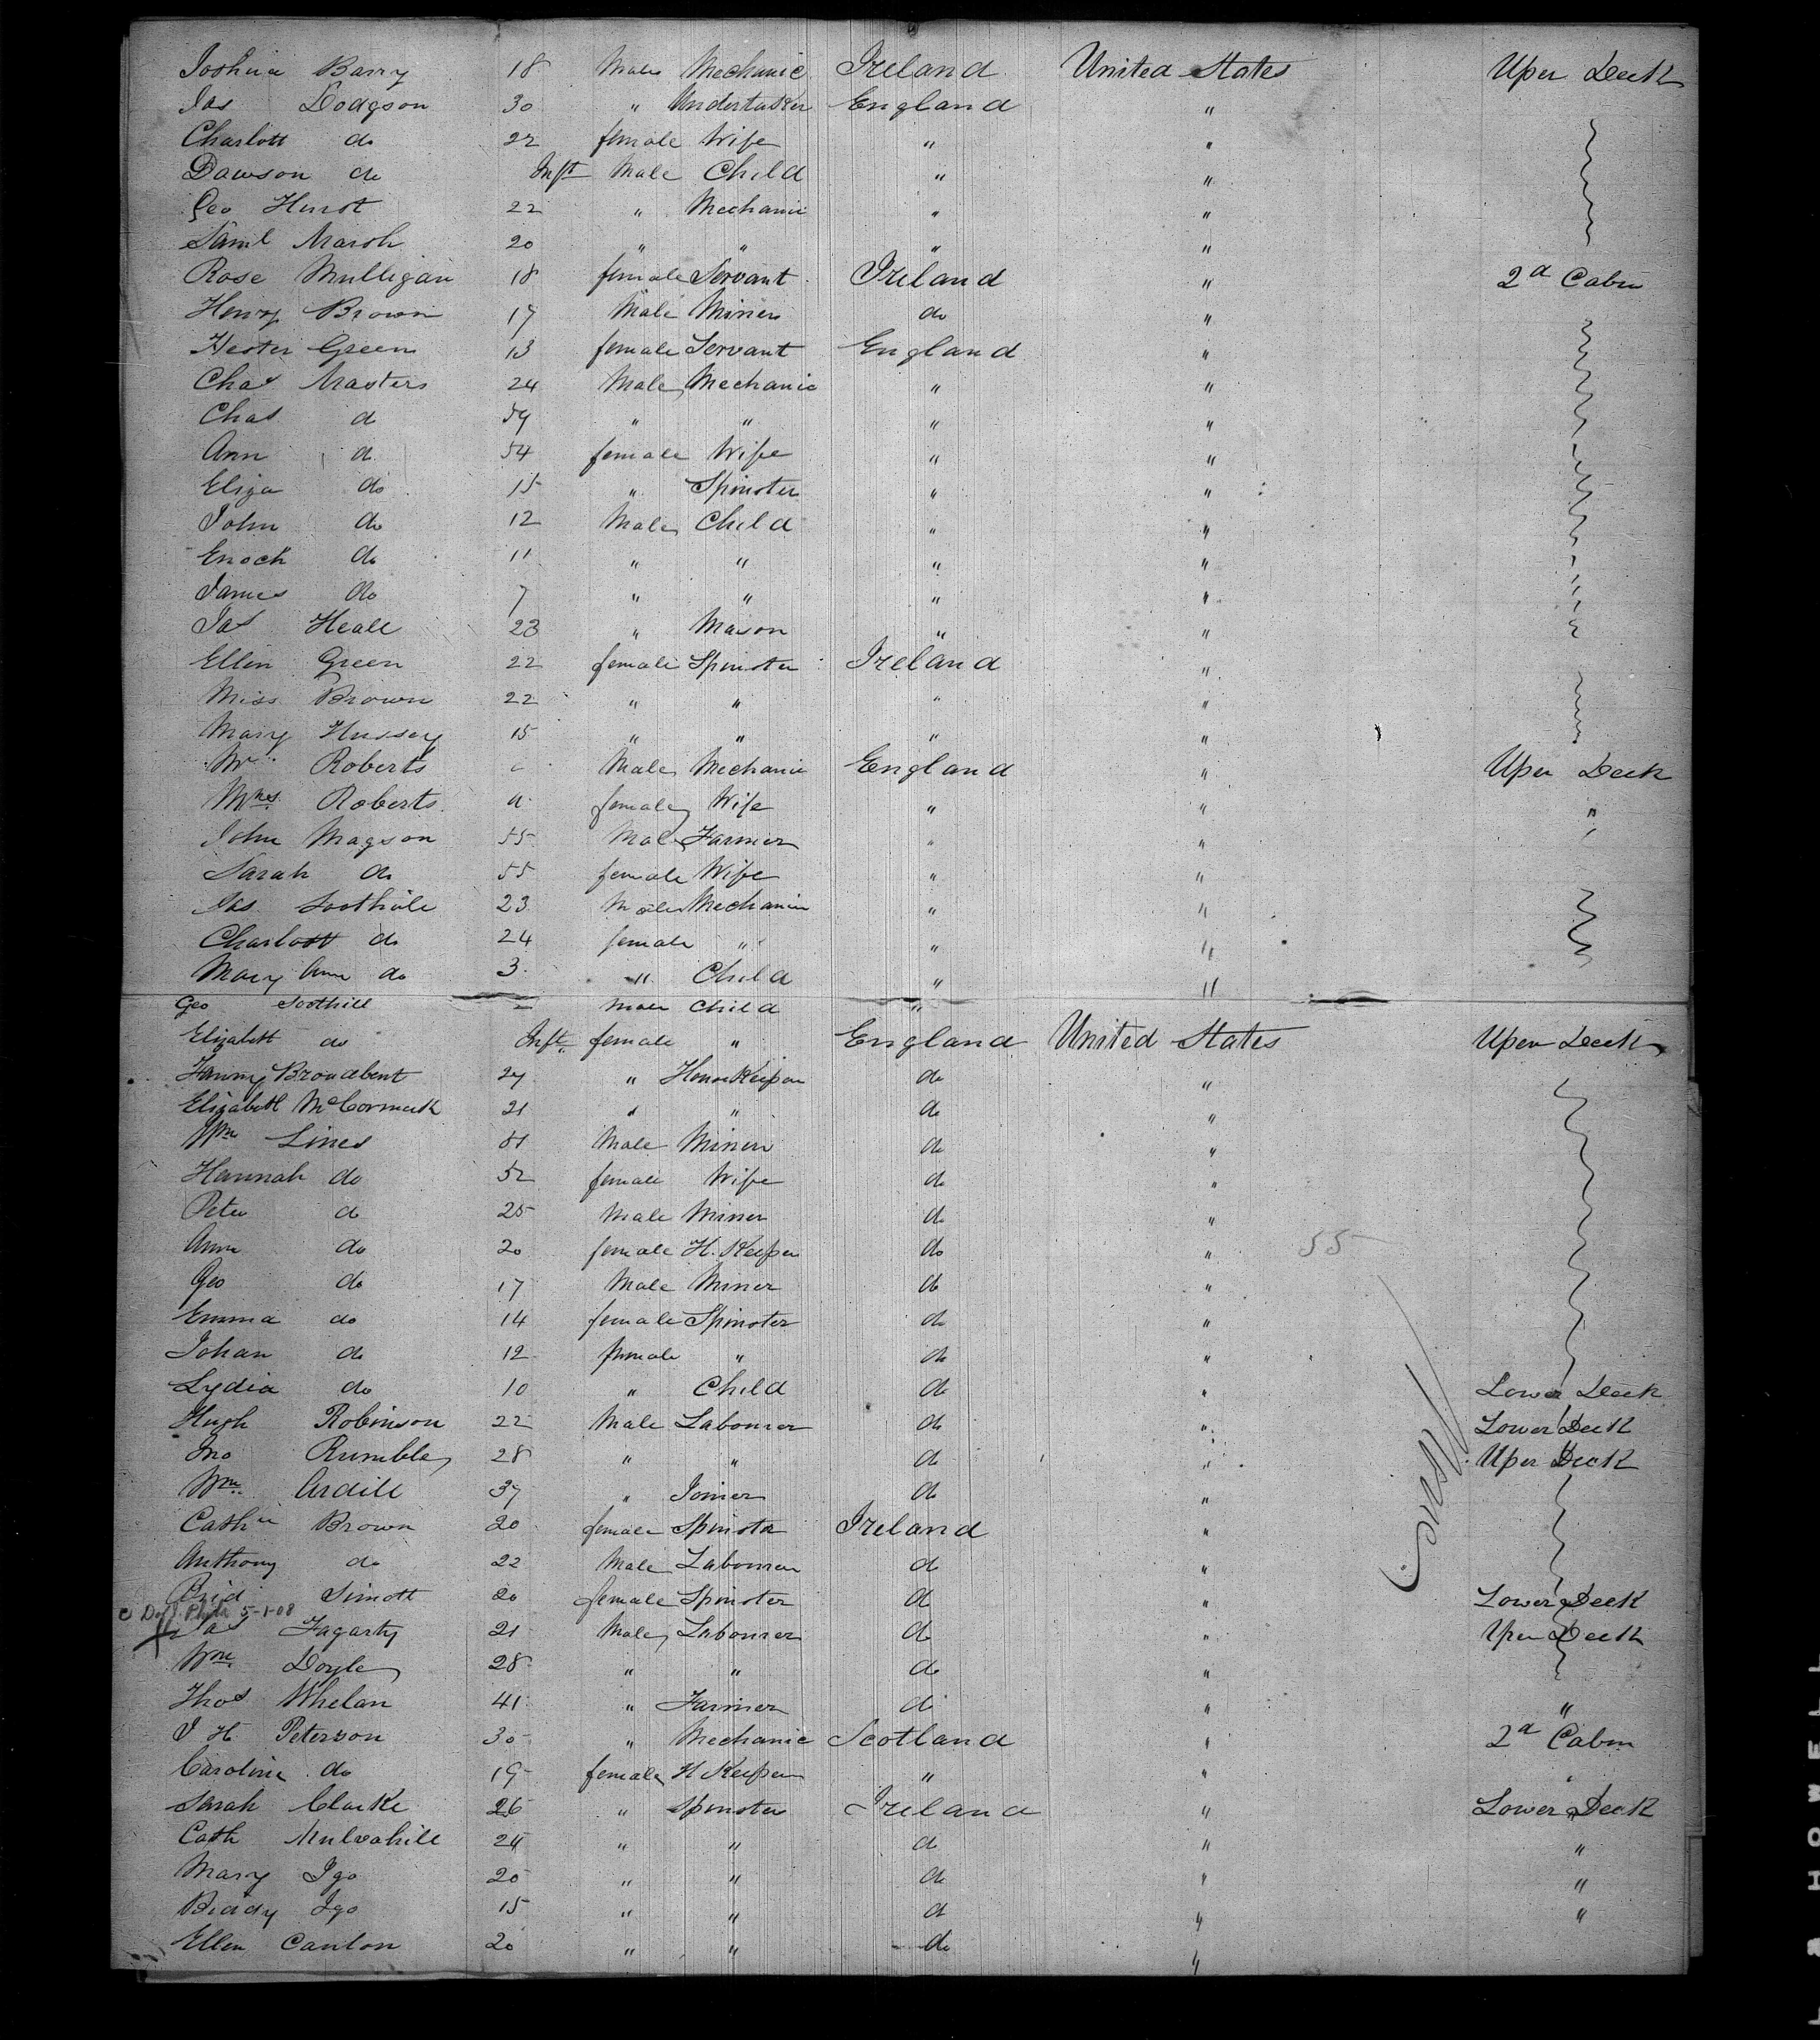 Joshua Barry 18 Male Mechanic Ireland United States Uper Deck
Jas Dodgson 30 " Undertaker England "
Charlott do 22 female Wife " "
Dawson do Inft Male Child " "
Geo Hurst 22 " Mechanic " "
Saml Marsh 20 " " " "
Rose Mulligan 18 female Servant Ireland " 2d Cabin
Henry Brown 17 Male Miner do "
Hester Green 13 female Servant England "
Chas Masters 24 Male Mechanic " "
Chas d 59 " " " "
Ann d 54 female Wife " "
Eliza do 15 " Spinster " "
John do 12 Male Child " "
Enoch do 11 " " " "
James do 7 " " " "
Jas Heall 23 " Mason " "
Ellen Green 22 female Spinster Ireland "
Miss Brown 22 " " " "
Mary Hussey 15 " " " "
Mr Roberts Male Mechanic England " Uper Deck
Mrs Roberts a female Wife " " "
John Magson 55 Male Farmer " " "
Sarah do 55 female Wife " "
Jas Soothile 23 Male Mechanic " "
Charlott do 24 female " " "
Mary Ann do 3 " Child " "
Geo Soothill Male Child "
Elizabett do Inft female " England United States Uper Deck
Fanny Broadbent 27 " House Keeper do "
Elizabett McCormack 21 " " do "
Wm Lines 51 Male Miner do "
Hannah do 52 female Wife do "
Peter do 25 Male Miner do "
Ann do 20 female H. Keeper do " 55
Geo do 17 Male Miner do "
Emma do 14 female Spinster do "
Johan do 12 female " do "
Lydia do 10 " Child do " Lower Deck
Hugh Robinson 22 Male Labourer do " Lower Deck
Jno Rumble 28 " " do " Uper Deck
Wm Ardill 37 " Joiner do "
Cathn Brown 20 female Spinster Ireland "
Anthony do 22 Male Labourer do "
Brid Sinott 20 female Spinster d " Lower Deck
5-1-08
Jas Fagarty 21 Male Labourer do " Uper Deck
Wm Doyle 28 " " do "
Thos Whelan 41 " Farmer d " "
J H Peterson 30 " Mechanic Scotland " 2d Cabin
Caroline do 19 female H Keeper " " "
Sarah Clarke 26 " Spinster Ireland " Lower Deck
Cath Mulvahill 24 " " do " "
Mary Igo 20 " " do " "
Biddy Igo 15 " " d " "
Ellen Canlon 20 " " do "